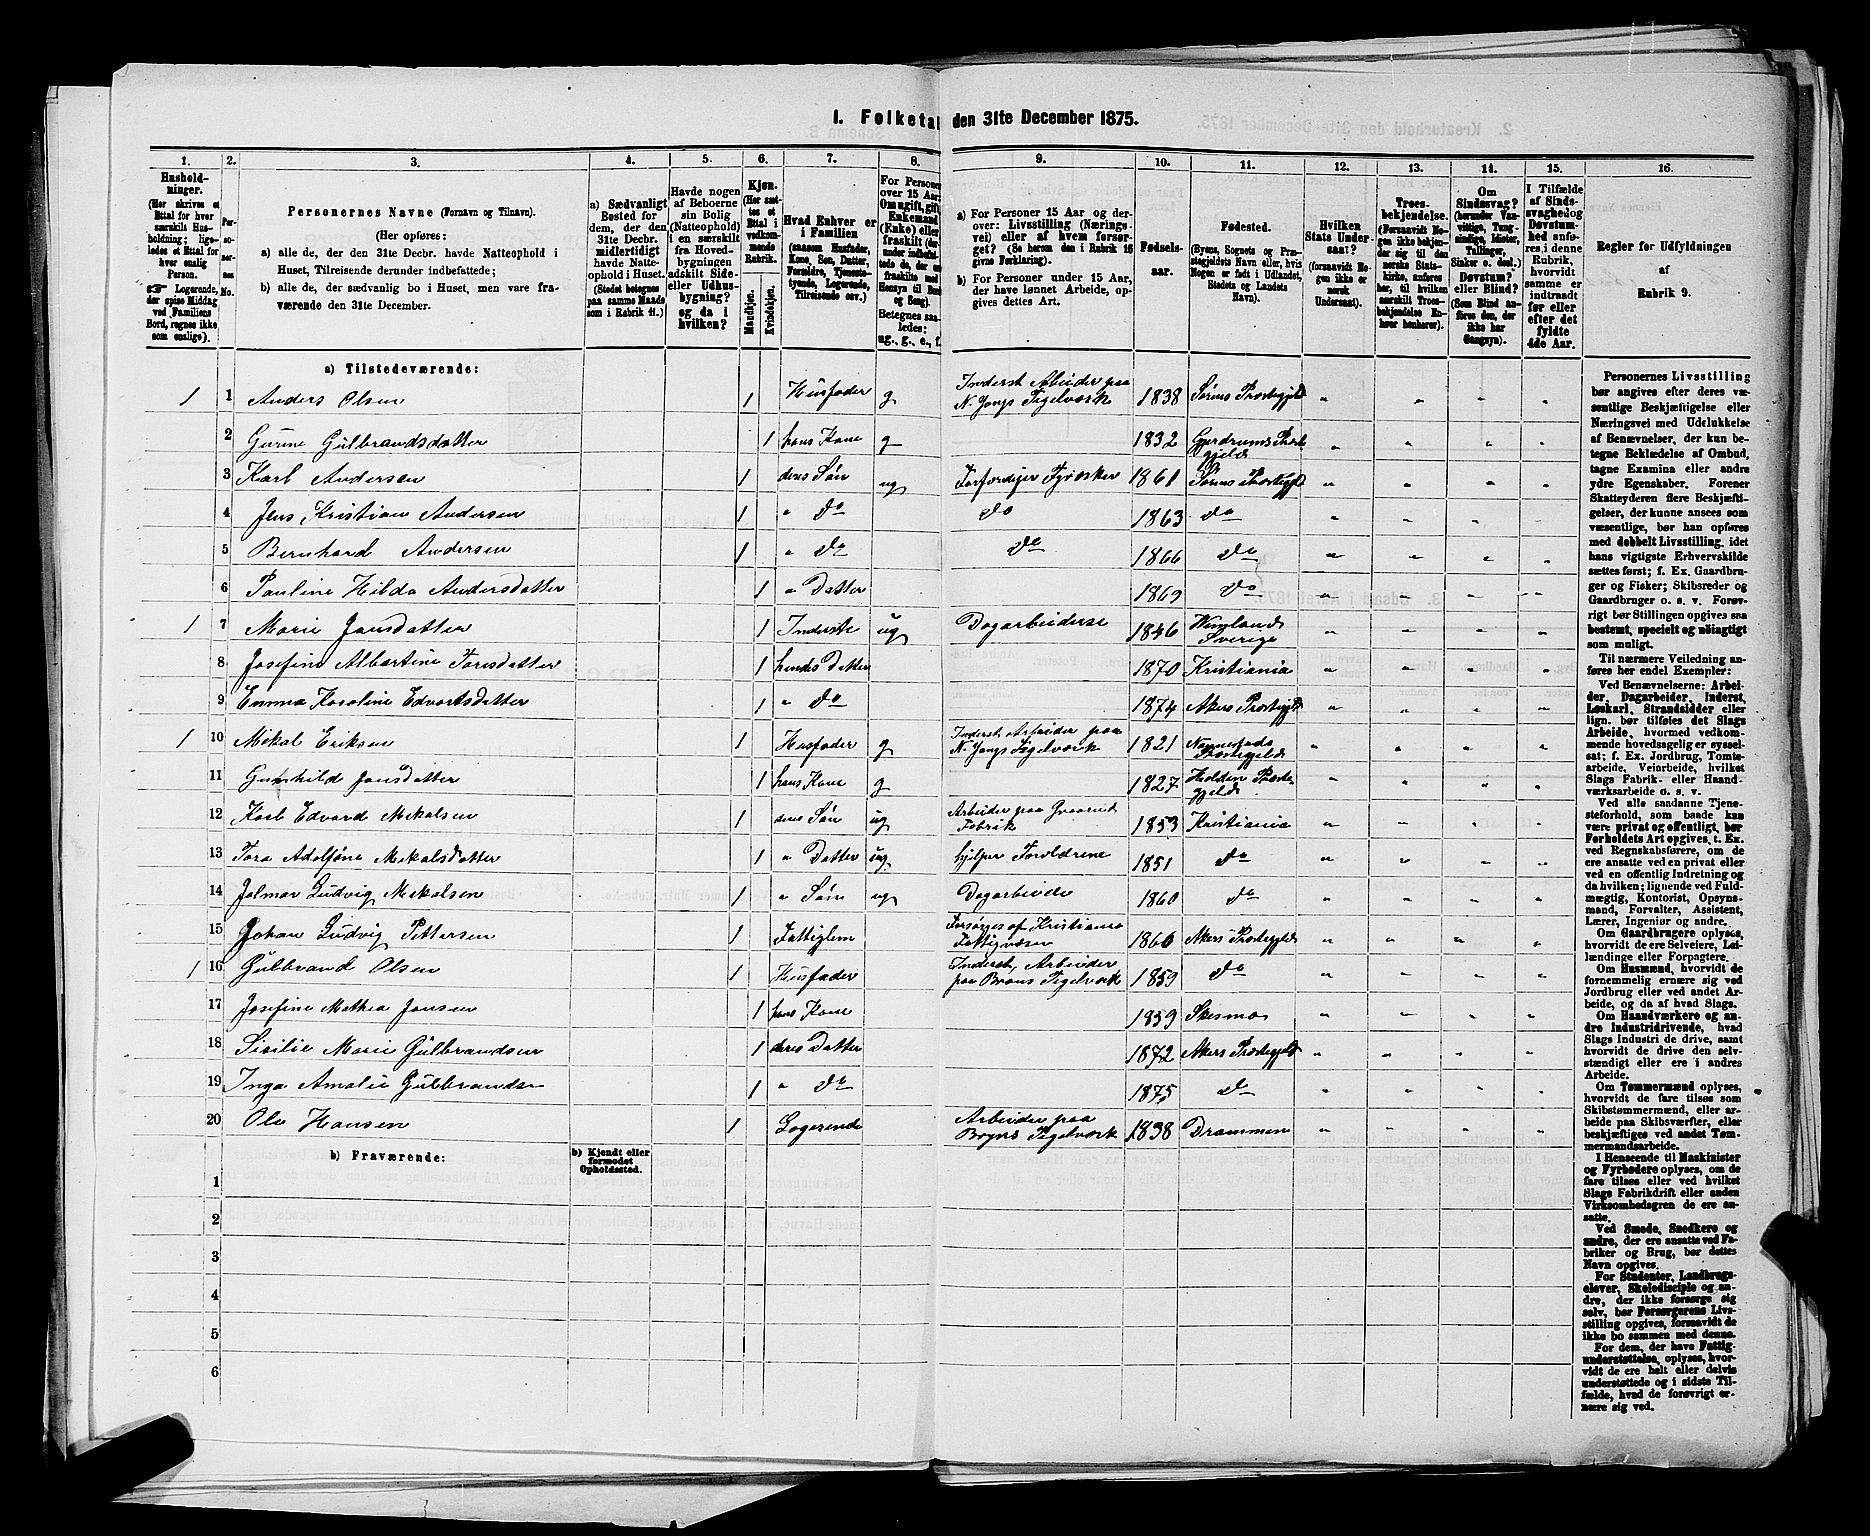 I. Folketal den 31te December 1875.
1. 2. 3. 4. 5. 6. 7. 8. 9. 10. 11. 12. 13. 14. 15. 16.
Husholdninger.
(Her skrives et Ettal for hver særskilt Husholdning; ligeledes et Ettal for hver enslig Person.
Logerende, der spise Middag ved Familiens Bord, regnes ikke som enslige).
Personernes No.
Personernes Navne (Fornavn og Tilnavn).
(Her opføres:
a) alle de, der den 31te Decbr. havde Natteophold i
Huset, Tilreisende derunder indbefattede;
b) alle de, der sædvanlig bo i Huset, men vare fra-
værende den 31te December.
a) Sædvanligt Bosted for dem, der den 31te Decbr. midlertidigt havde Natteophold i Huset.
(Stedet betegnes paa samme Maade som i Rubrik 11.)
Havde nogen af Beboerne sin Bolig (Natteophold) i en særskilt fra Hovedbygningen adskilt Side- eller Udhusbygning? og da i hvilken?
Kjøn.
(Her sættes et Ettal i vedkommende Rubrik.
Mandkjøn. Kvindekjøn.
Hvad Enhver er i Familien
(saasom Husfader, Kone, Søn, Datter, Forældre, Tjenestetyende, Logerende, Tilreisende osv.)
For Personer over 15 Aar: Om ugift, gift, Enkemand (Enke) eller fraskilt
Betegnes saaledes:
ug., g., e., f.
a) For Personer 15 Aar og derover: Livsstilling (Næringsvei) eller af hvem forsørget? (Se herom den i Rubrik 16 givne Forklaring).
b) For Personer under 15 Aar, der have lønnet Arbeide, opgives dettes Art.
Fødselsaar.
Fødested.
(Byens, Sognets og Præstegjeldets Navn eller, hvis Nogen er født i Udlandet, Stedets og Landets Navn).
Hvilken Stats Undersaat?
(forsaavidt Nogen ikke er norsk Undersaat).
Troesbekjendelse.
(Forsaavidt Nogen ikke bekjender sig til den norske Statskirke, anføres her, til hvilken særskilt Troesbekjendelse Enhver henhører).
Om Sindssvag? (herunder Vanvittige, Tungsindige, Idioter, Tullinger, Sinker o. desl.) Døvstum? eller Blind? (Som Blind anføres den, der ikke har Gangsyn).
I Tilfælde af Sindssvaghed og Døvstumhed anføres i denne Rubrik, hvorvidt samme er indtraadt før eller efter det fyldte 4de Aar.
Regler for Udfyldningen
af
Rubrik 9.
a) Tilstedeværende:
1 1 Anders Olsen 1 Husfader g Inderst Abeider paa N. Jongs Tegelværk 1838 Sørum Prestegjeld " " " "
2 Gurine Gulbrandsdatter 1 hans Kone g 1832 Gjerdrums Prestegjeld " " " "
3 Karl Andersen 1 deres Søn ug Forfærdiger Fyrstikker 1861 Sørum Prestegjeld " " " "
4 Jens Kristian Andersen 1 " do do 1863 do " " " "
5 Bernhard Andersen 1 " do do 1866 do " " " "
6 Pauline Hilda Andersdatter 1 " Datter 1869 do " " " "
1 7 Marie Jansdatter 1 Inderste ug Dagarbeiderse 1846 Vermland Sverige " " " "
8 Josefine Albertine Torsdatter 1 hendes Datter 1870 Kristiania " " " "
9 Emma Karoline Edvartsdatter 1 " do 1874 Akers Prestegjeld " " " "
1 10 Mekal Eriksen 1 Husfader g Inderst Arbeider paa N. Jongs Tegelværk 1821 Prestegjeld " " " "
11 Gunhild Jansdatter 1 hans Kone g 1827 Holden Prestegjeld " " " "
12 Karl Edvard Mekalsen 1 deres Søn ug Arbeider paa Fabrik 1853 Kristiania " " " "
13 Tora Adolfine Mekalsdatter 1 " Datter ug hjelper Foreldrene 1851 do " " " "
14 Jalmar Ludvig Mekalsen 1 " Søn ug Dagarbeide 1860 do " " " "
15 Johan Ludvig Pettersen 1 Fattiglem Forsørges af Kristiania Fattigvæsen 1866 Akers Prestegjeld " " " "
1 16 Gulbrand Olsen 1 Husfader Inderst, Arbeider paa Bryns Tegelværk 1859 do " " " "
17 Josefine Mathea Jansen 1 hans Kone 1859 Skesmo " " " "
18 Sisilie Marie Gulbrandsen 1 deres Datter 1872 Akers Prestegjeld " " " "
19 Inga Amalie Gulbrandse 1 " do 1875 do " " " "
20 Ole Hansen 1 Logerende Arbeider paa Bryns Tegelværk 1838 Drammen " " " "
b) Fraværende:
b) Kjendt eller formodet Opholdssted.
1
2
3
4
5
6
Personernes Livsstilling
bør angives efter deres væ-
sentlige Beskjæftigelse eller
Næringsvei med Udelukkelse
af Benævnelser, der kun be-
tegne Beklædelse af Ombud,
tagne Examina eller andre
ydre Egenskaber. Forener
Skatteyderen flere Beskjæfti-
gelser, der kunne ansees som
væsentlige, bør han opføres
med dobbelt Livsstilling, idet
hans vigtigste Erhvervskilde
sættes først; f. Ex. Gaardbru-
ger og Fisker; Skibsreder og
Gaardbruger o. s. v. Forøv-
rigt bør Stillingen opgives saa
bestemt, specielt og nøiagtigt
som muligt.
Til nærmere Veiledning an-
føres her endel Exempler:
Ved Benævnelserne: Arbei-
der, Dagarbeider, Inderst,
Løskarl, Strandsidder eller
lign. bør tilføies det Slags
Arbeide, hvormed vedkom-
mende hovedsagelig er syssel-
sat; f. Ex. Jordbrug, Tomte-
arbeide, Veiarbeide, hvilket
Slags Fabrik- eller Haand-
værksarbeide o. s. v.
Ved alle saadanne Tjene-
steforhold, som baade kan
være privat og offentligt, bør
Forholdets Art opgives, t. Ex.
ved Regnskabsførere, om de
ere ansatte ved en privat eller
ved en offentlig Indretning og
da hvilken; lignende ved Fuld-
mægtig, Kontorist, Opsyns-
mand, Forvalter, Assistent,
Lærer, Ingeniør og andre.
Om Gaardbrugere oplyses,
hvorvidt de ere Selveiere, Lei-
lændinge eller Forpagtere.
Om Husmænd, hvorvidt de
fornemmelig ernære sig ved
Jordbrug eller ved andet Ar-
beide, og da af hvad Slags.
Om Haandværkere og an-
dre Industridrivende, hvad
Slags Industri de drive, samt
hvorvidt de drive den selv-
stændigt eller ere i andres
Arbeide.
Om Tømmermænd oplyses,
hvorvidt de fare tilsøs som
Skibstømmermænd, eller ar-
beide paa Skibsværfter, eller
beskjæftiges ved andet Tøm-
mermandsarbeide.
I Henseende til Maskinister
og Fyrbødere oplyses, om de
fare tilsøs eller ved hvilket
Slags Fabrikdrift eller anden
Virksomhedsgren de ere an-
satte.
Ved Smede, Snedkere og
andre, der ere ansatte ved Fa-
briker og Brug, bør dettes
Navn opgives.
For Studenter, Landbrugs-
elever, Skoledisciple og an-
dre, der ikke forsørge sig
selv, bør Forsørgerens Livs-
stilling opgives, forsaavidt de
ikke bo sammen med denne.
For dem, der have Fattig-
understøttelse, oplyses, hvor-
vidt de ere helt eller delvis
understøttede og i sidste Til-
fælde, hvad de forøvrigt er-
nære sig ved.